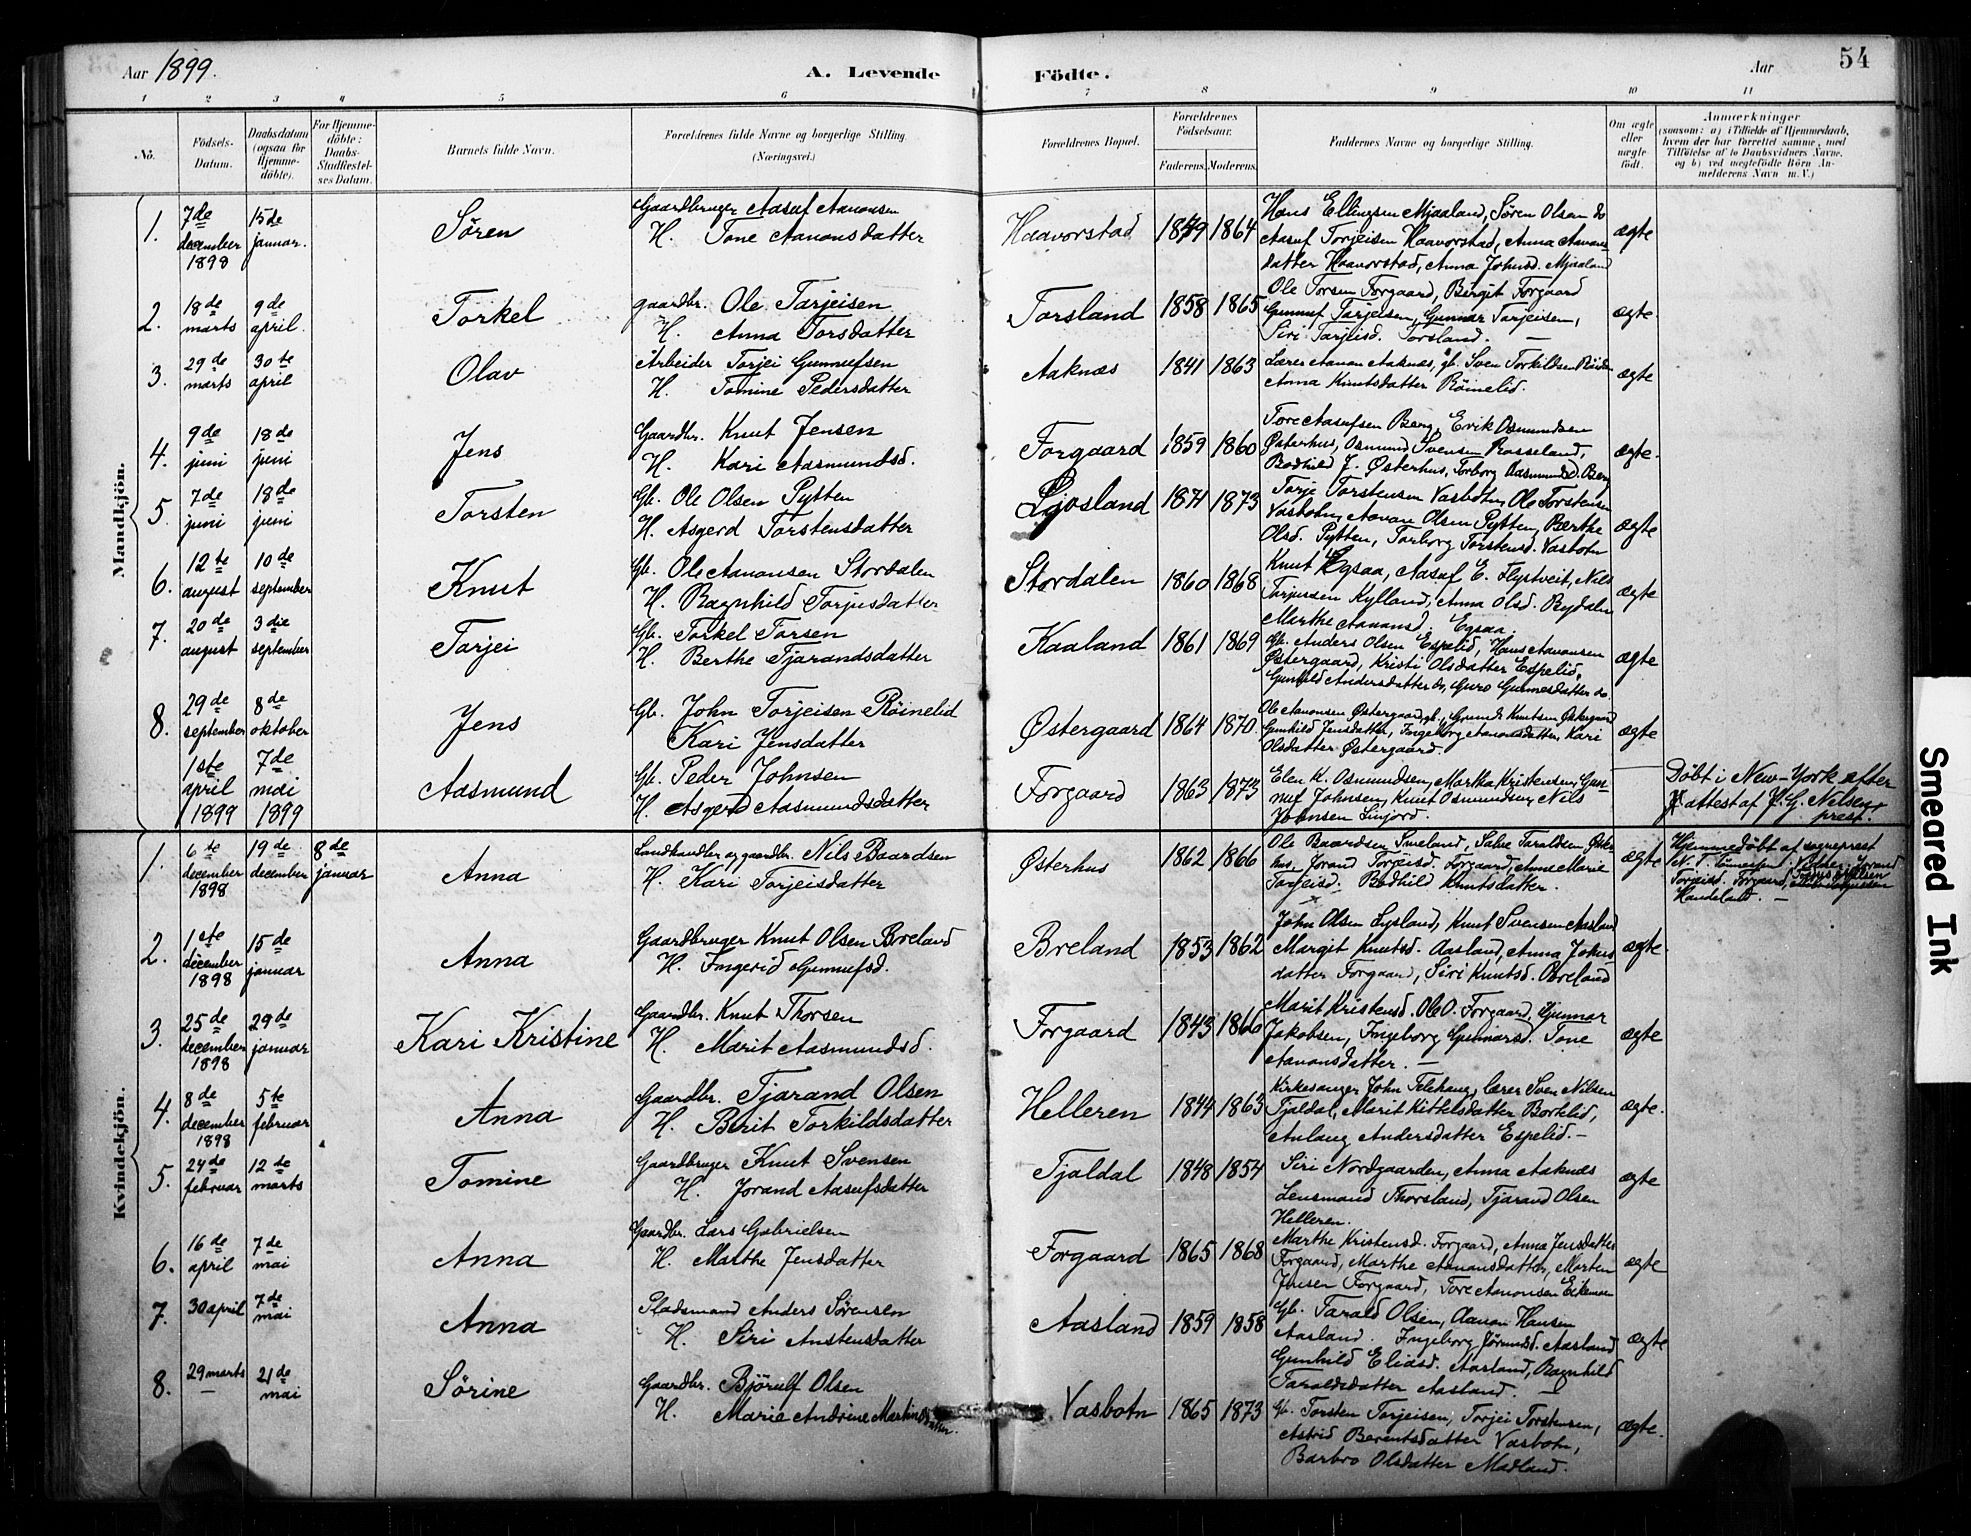 Aar 1899.
A. Levende
Födte.
Aar
54
1 2 3 4 5 6 7 8 9 10 11
No.
Födsels-Datum.
Daabsdatum (ogsaa for Hjemme-döbte).
For Hjemme-döbte: Daabs-Stadfæstel-ses Datum.
Barnets fulde Navn.
Forældrenes fulde Navne og borgerlige Stilling. (Næringsvei.)
Forældrenes Bopæl.
Forældrenes Födselsaar.
Faderens. Moderens.
Faddernes Navne og borgerlige Stilling.
Om ægte eller uægte födt.
Anmærkninger
(saasom: a) i Tilfælde af Hjemmedaab, hvem der har forrettet samme, med Tilföielse af to Daabsvidners Navne, og b) ved uægtefödte Börn Anmelderens Navn m. V.)
Mandkjön.
1. 7de december 1898 15de januar. Sören Gaardbruger Aasuf Aanonsen
H. Tone Aanonsdatter Haavorstad 1859 1864 ægte
Hans Ellingsen Mjaaland, Sören Olsen do
Aasuf Torjeisen Haavorstad, Anna Aanons-
datter Haavorstad, Anna Johnsd. Mjaaland
2. 18de marts 9de april. Torkel gaardbr. Ole Tarjeisen
H. Anna Torsdatter Torsland 1858 1865 ægte.
Ole Torsen Forgaard, Birgit Forgaard
Gunnuf Tarjeisen, Gunnar Tarjeisen,
Siri Tarjeisd. Torsland. —
3. 29de marts 30te april Olav Arbeider Torjei Gunnufsen
H. Tomine Pedersdatter Aaknæs 1841 1863 ægte
Lærer Aanon Aaknæs, gb. Sven Torkildsen
Anna Knutsdatter Röinelid.
4. 9de juni 18de juni Jens Gaardbr. Knut Jensen
H. Kari Aasmundsd. Forgaard 1859 1860 ægte.
Tore Aasufsen Berg, Erik Osmundsen
Østerhus, Osmund Svensen Rosseland,
Bodhild J. Østerhus, Torborg Aasmundsd. Berg
5. 7de juni 18de juni Torsten Gb. Ole Olsen Pytten
H. Asgerd Torstensdatter Ljosland 1871 1873 ægte
Torje Torstensen Vasbotn, Ole Torstensen
Vasbotn, Aanon Olsen Pytten, Berthe
Olsd. Pytten, Torborg Torstensd. Vasbotn
6. 12te august 10de september Knut Gb. Ole Aanonsen Stordalen
H. Ragnhild Torjusdatter Stordalen 1860 1868 ægte
Knut Egsaa, Aasuf E. Flystveit, Nils
Torjussen Kylland, Anna Olsd. Rydalen
Marthe Aanonsd. Egsaa.
7. 20de august 3die september Tarjei Gb. Torkel Torsen
H. Berthe Tjarandsdatter Kaaland 1861 1869 ægte
Gb. Anders Olsen Espelid, Hans Aanonsen
Østergaard, Kristi Olsdatter Espelid,
Gunhild Andersdatter do, Guro Gunnesdatter do
8. 29de september 8de oktober Jens Gb. John Torjeisen Röinelid
Kari Jensdatter Østergaard 1864 1870. ægte
Ole Aanonsen Østergaard, gb., Knutsen Østergaard
Gunhild Jensdatter, Ingeborg Aanonsdatter, Kari
Olsdatter Østergaard.
1ste april 1899 7de mai 1899 Aasmund Gb. Peder Johnsen
H. Asgerd Aasmundsdatter Forgaard 1863 1873
Elen K. Osmundsen, Martha Kristensen, Gun-
nuf Johnsen, Knut Osmundsen, Nils
Johnsen Linjord.
Döbt i New-York efter
attest af P. G. Nelsen,
prest.
Kvindekjön.
1. 6te december 1898 19de december 8de januar Anna Landhandler og gaardbr. Nils Baardsen
H. Kari Torjeisdatter Østerhus 1862 1866 ægte
Ole Baardsen Smeland, Salve Taraldsen Øster-
hus, Jorand Torjeisd. Forgaard, Anne Marie
Torjeisd. Bodhild Knutsdatter.
Hjemmedöbt af sogneprest
N. T. Tönnessen; Vidner: Jorand
Torjeisd. Forgaard,
2. 1ste december 1898 15de januar Anna Gaardbruger Knut Olsen Breland
H. Ingerid Gunnufsd. Breland 1853 1862 ægte.
John Olsen Lysland, Knut Svensen Aasland
Margit Knutsd. Aasland, Anna Johns-
datter Forgaard, Siri Knutsd. Breland
3. 25de december 1898 29de januar Kari Kristine Gaardbr. Knut Thorsen
H. Marit Aasmundsd. Forgaard 1843 1866 ægte
Marit Kristensd. Ole O. Forgaard, Gunnar
Jakobsen, Ingeborg Gunnarsd. Tone
Aanonsdatter. —
4. 8de december 1898 5te februar Anna Gaardbr. Tjarand Olsen
H. Berit Torkildsdatter Helleren 1844 1863 ægte.
Kirkesanger John Telehaug, lærer Sven Nilsen
Tjaldal, Marit Kittelsdatter Bortelid,
Anlaug Andersdatter Espelid. —
5. 24de februar 12te marts Tomine Gaardbruger Knut Svensen
H. Jorand Aasufsdatter Tjaldal 1848 1854 ægte
Siri Nordgaarden, Anna Aaknæs
Lensmand Thorsland, Tjarand Olsen
Helleren.
6. 16de april 7de mai Anna Gaardbr. Lars Gabrielsen
H. Marthe Jensdatter Forgaard 1865 1868 ægte
Marthe Kristensd. Forgaard, Anna Jensdatter
Forgaard, Marthe Aanonsdatter, Morten
Jensen Forgaard, Tore Aanonsen Eikemo
7. 30 april 7de mai Anna Pladsmand Anders Sörensen
H. Siri Anstensdatter Aasland 1859 1858 ægte
Gb. Tarald Olsen, Aanon Hansen
Aasland. Ingeborg Jörundsd. Aasland
Gunhild Eliasd. Aasland, Ragnhild
Taraldsdatter Aasland. —
8. 29 marts — 21de mai Sörine Gaardbr. Björulf Olsen
H. Marie Andrine Martinsdatter. Vasbotn 1865 1873 ægte.
gb. Torsten Torjeisen, Torjei Torstensen,
Astrid Berentsdatter Vasbotn,
Barbro Olsdatter Madland.
Smeared Ink